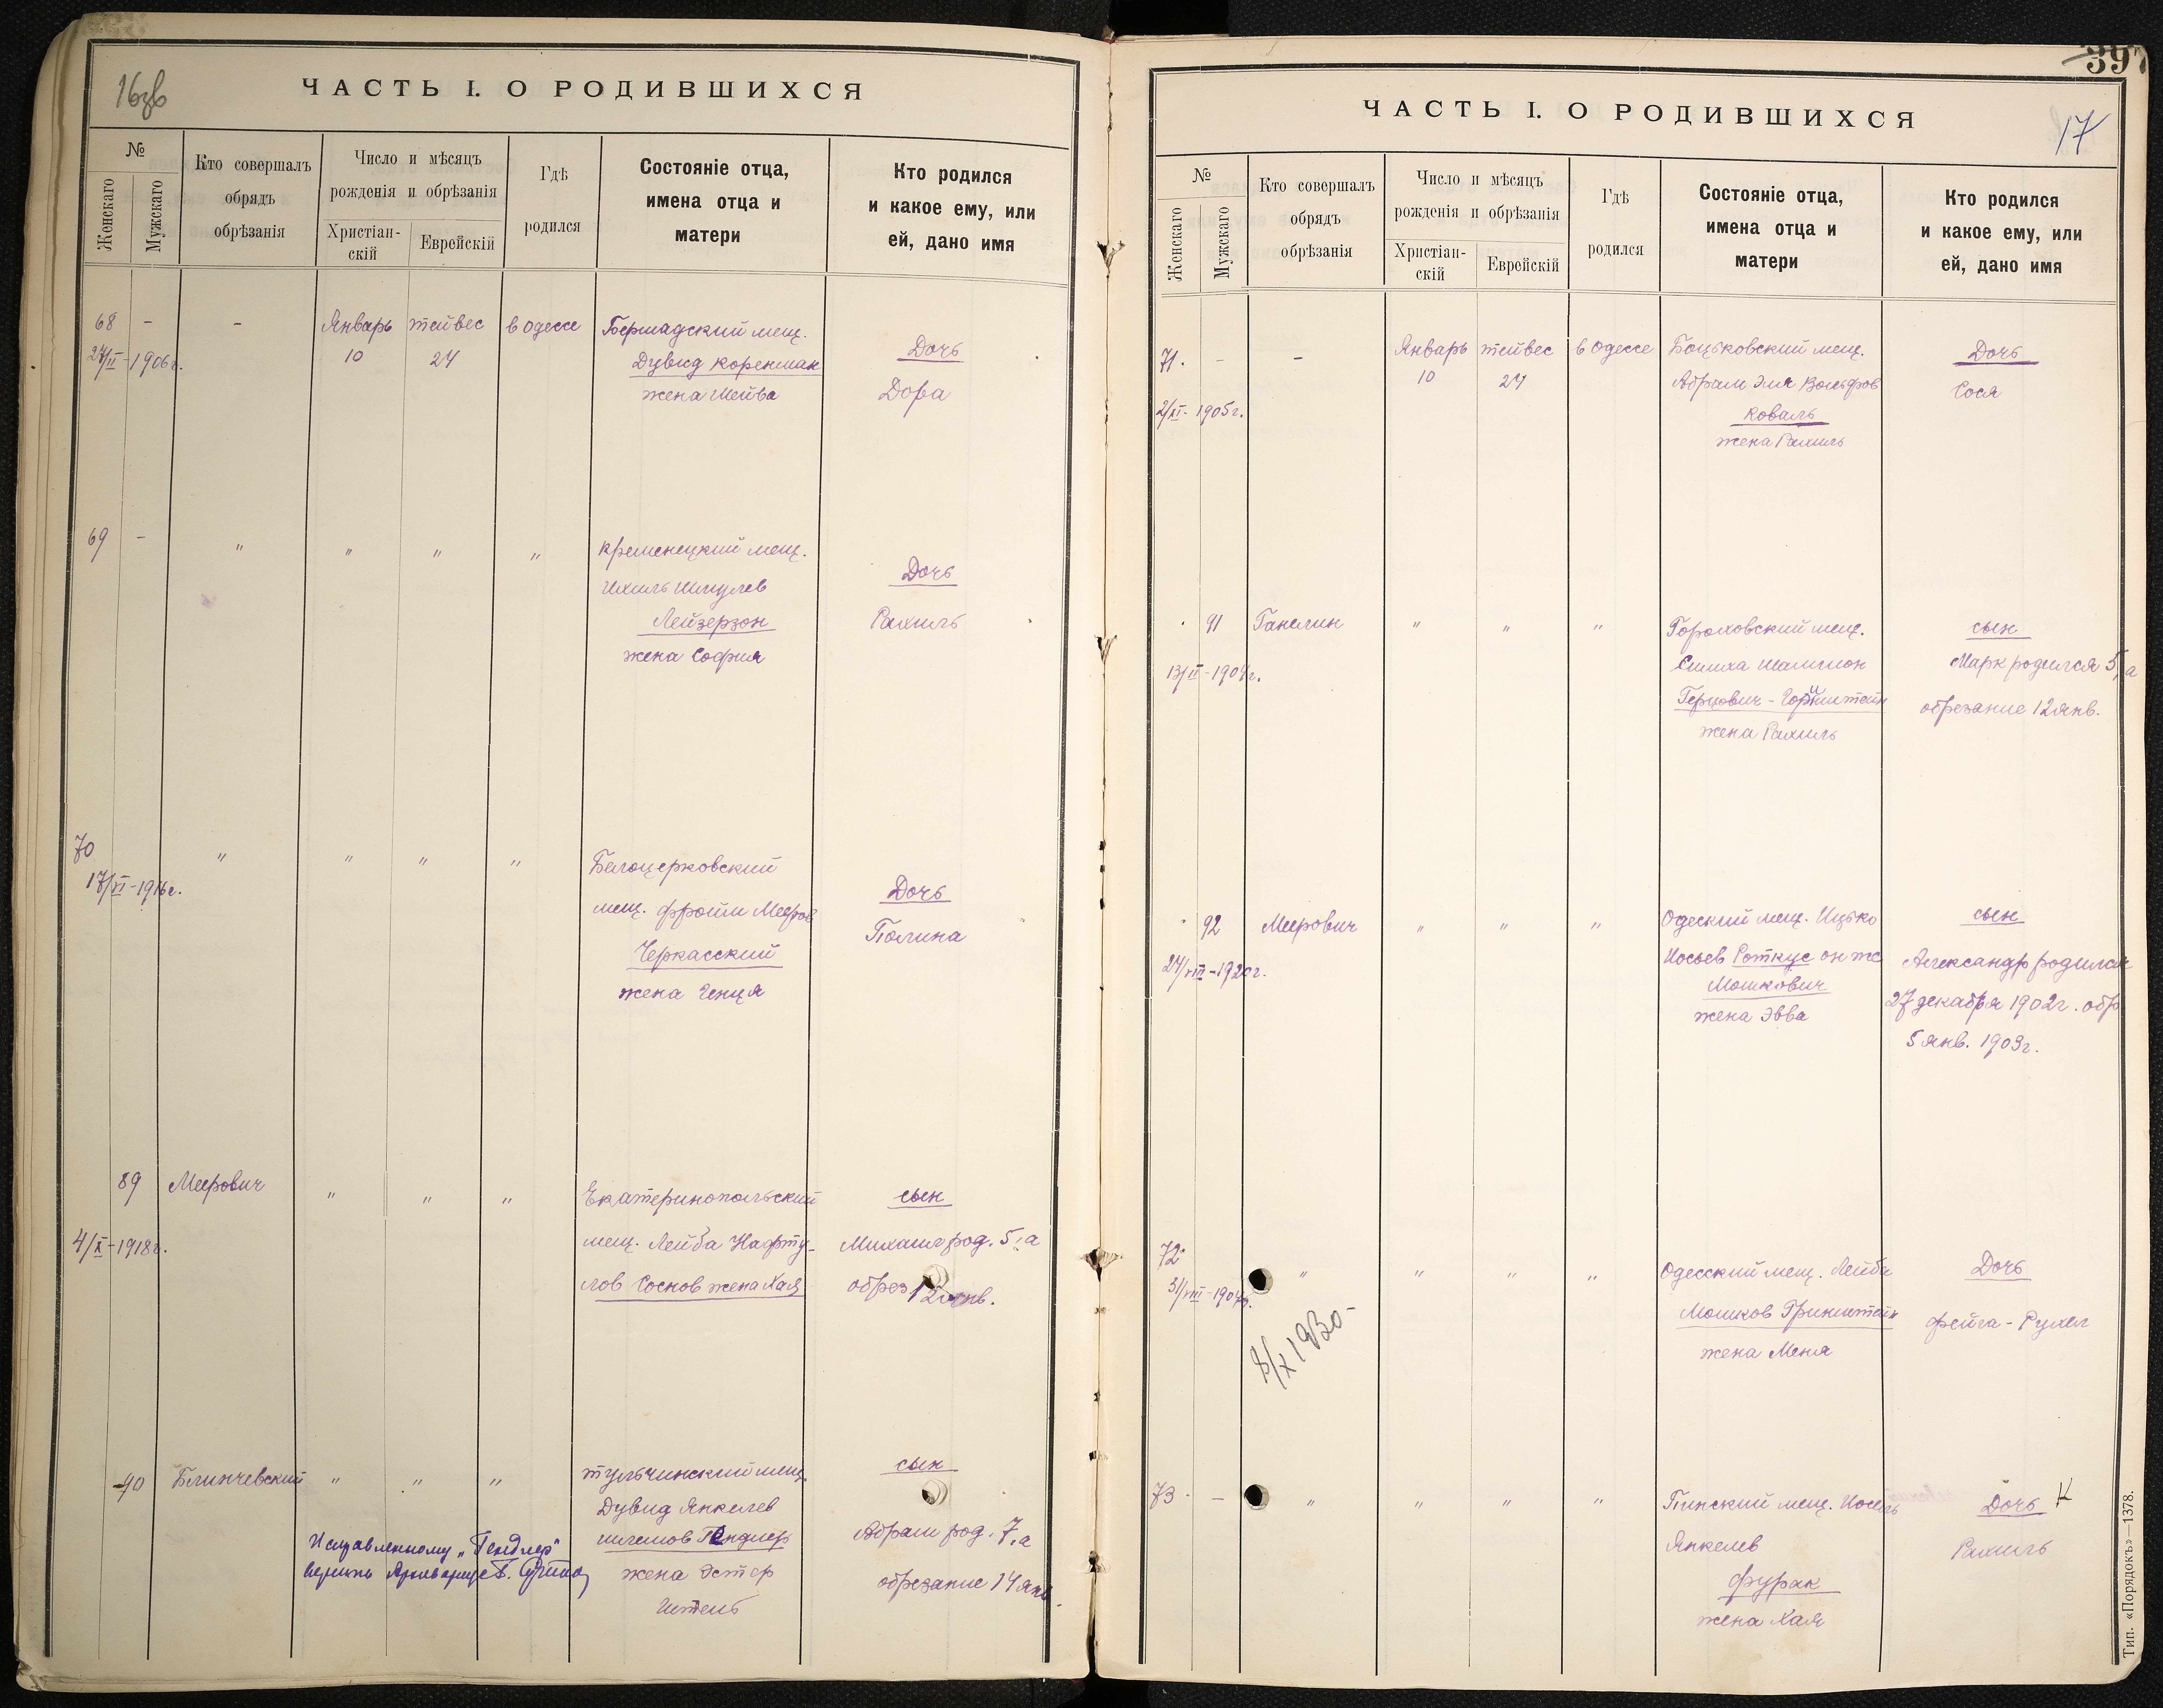 16зв
ЧАСТЬ I. О РОДИВШИХСЯ
№
Женскаго
Мужскаго
Кто совершалъ
обрядъ
обрѣзанія
Число и мѣсяцъ
рожденія и обрѣзанія
Христіан-
скій
Еврейскій
Гдѣ
родился
Состояніе отца,
имена отца и
матери
Кто родился
и какое ему, или
ей, дано имя
68 - - Январь тейвес в Одессе Бершадский мещ.
27/II-1906г. 10 24 Дувид Коренман Дочь
жена Шейва Дора
69 - " " " " Кременецкий мещ.
Ихиль Шмулев Дочь
Лейзерзон Рахиль
жена София
70 " " " " Белоцерковский
17/VI-1916г. мещ. Фроим Мееров Дочь
Черкасский Полина
жена Генця
89 Меерович " " " Екатеринопольский сын
4/X-1918г. мещ. Лейба Нафту- Михаил род. 5, а
лов Соснов жена Хая обрез 12 янв.
90 Блинчевский " " " тульчинский мещ. сын
Дувид Янкелев
шлемов Гендлер Абрам род. 7, а
жена Эстер обрезание 14 янв.
Исправленному „Гендлер"
верить Архивариус
397
17
ЧАСТЬ I. О РОДИВШИХСЯ
№
Женскаго
Мужскаго
Кто совершалъ
обрядъ
обрѣзанія
Число и мѣсяцъ
рожденія и обрѣзанія
Христіан-
скій
Еврейскій
Гдѣ
родился
Состояніе отца,
имена отца и
матери
Кто родился
и какое ему, или
ей, дано имя
71. - - Январь тейвес в Одессе Боцьковский мещ. Дочь
10 24 Абрам Эля Вольфов Сося
2/XI-1905г. Коваль
жена Рахиль
91 Ганелин " " " Гороховский мещ. сын
13/II-1904г. Симха Шамшон Марк родился 5, а
Герцович - Горнштейн обрезание 12 янв.
жена Рахиль
92 Меерович " " " Одеский мещ. Ицько сын
24/VIII-1920г. Иосьев Роткус он же Александр родился
Мошкович 27 декабря 1902г. обр
жена Эвва 5 янв. 1903г.
72 " " " " Одесский мещ. Лейба Дочь
31/VIII-1904г. Мошков Гринштейн Фейга-Рухля
жена Меня
8/X 1930
73 - " " " " Пинский мещ. Иосель Дочь К
Янкелев Рахиль
Фурак
жена Хая
Тип. «Порядокъ»—1378.